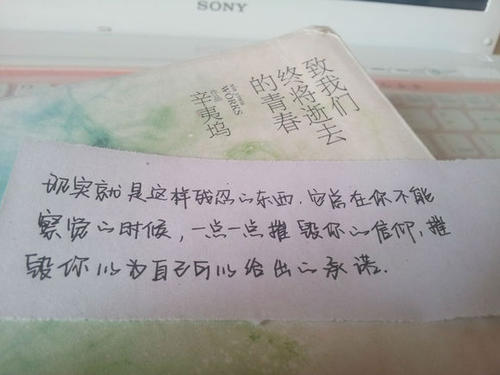 SONY
致我们
终将逝去
的青春
WORKS
辛夷坞
现实就是这样残忍的东西.它总在你不能
察觉的时候,一点一点摧毁你的信仰,摧
毁你以为自己可以给出的承诺.